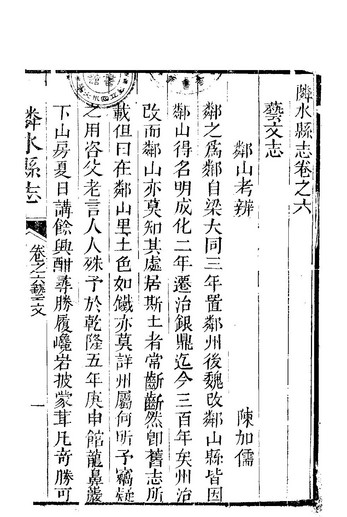 鄰水縣志卷之六
藝文志
鄰山考辨
陳加儒
鄰之爲鄰自梁大同三年置鄰州後魏改鄰山縣皆因
鄰山得名明成化二年遷治銀鼎迄今三百年矣州治
改而鄰山亦莫知其處居斯土者常齗齗然卽舊志所
載但曰在鄰山里土色如鐵亦莫詳州屬何所予竊疑
之用咨父老言人人殊予於乾隆五年庚申館龍鼻巖
下山房夏日講餘興酣尋勝履巉岩披蒙茸凡奇勝可
鄰水縣志
卷之六藝文
一